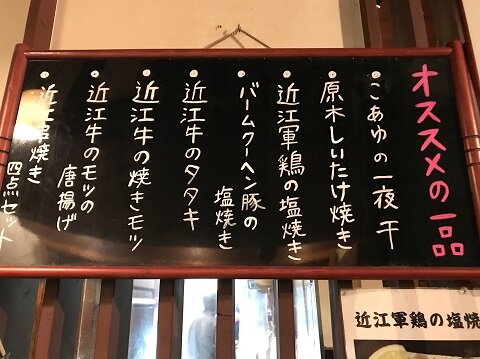 オススメの一品
・こあゆの一夜干
・原木しいたけ焼き
・近江軍鶏の塩焼き
・バームクーヘン豚の
塩焼き
・近江牛のタタキ
・近江牛の焼きモツ
・近江牛のモツの
唐揚げ
・近江串焼き
四点セット
近江軍鶏の塩焼